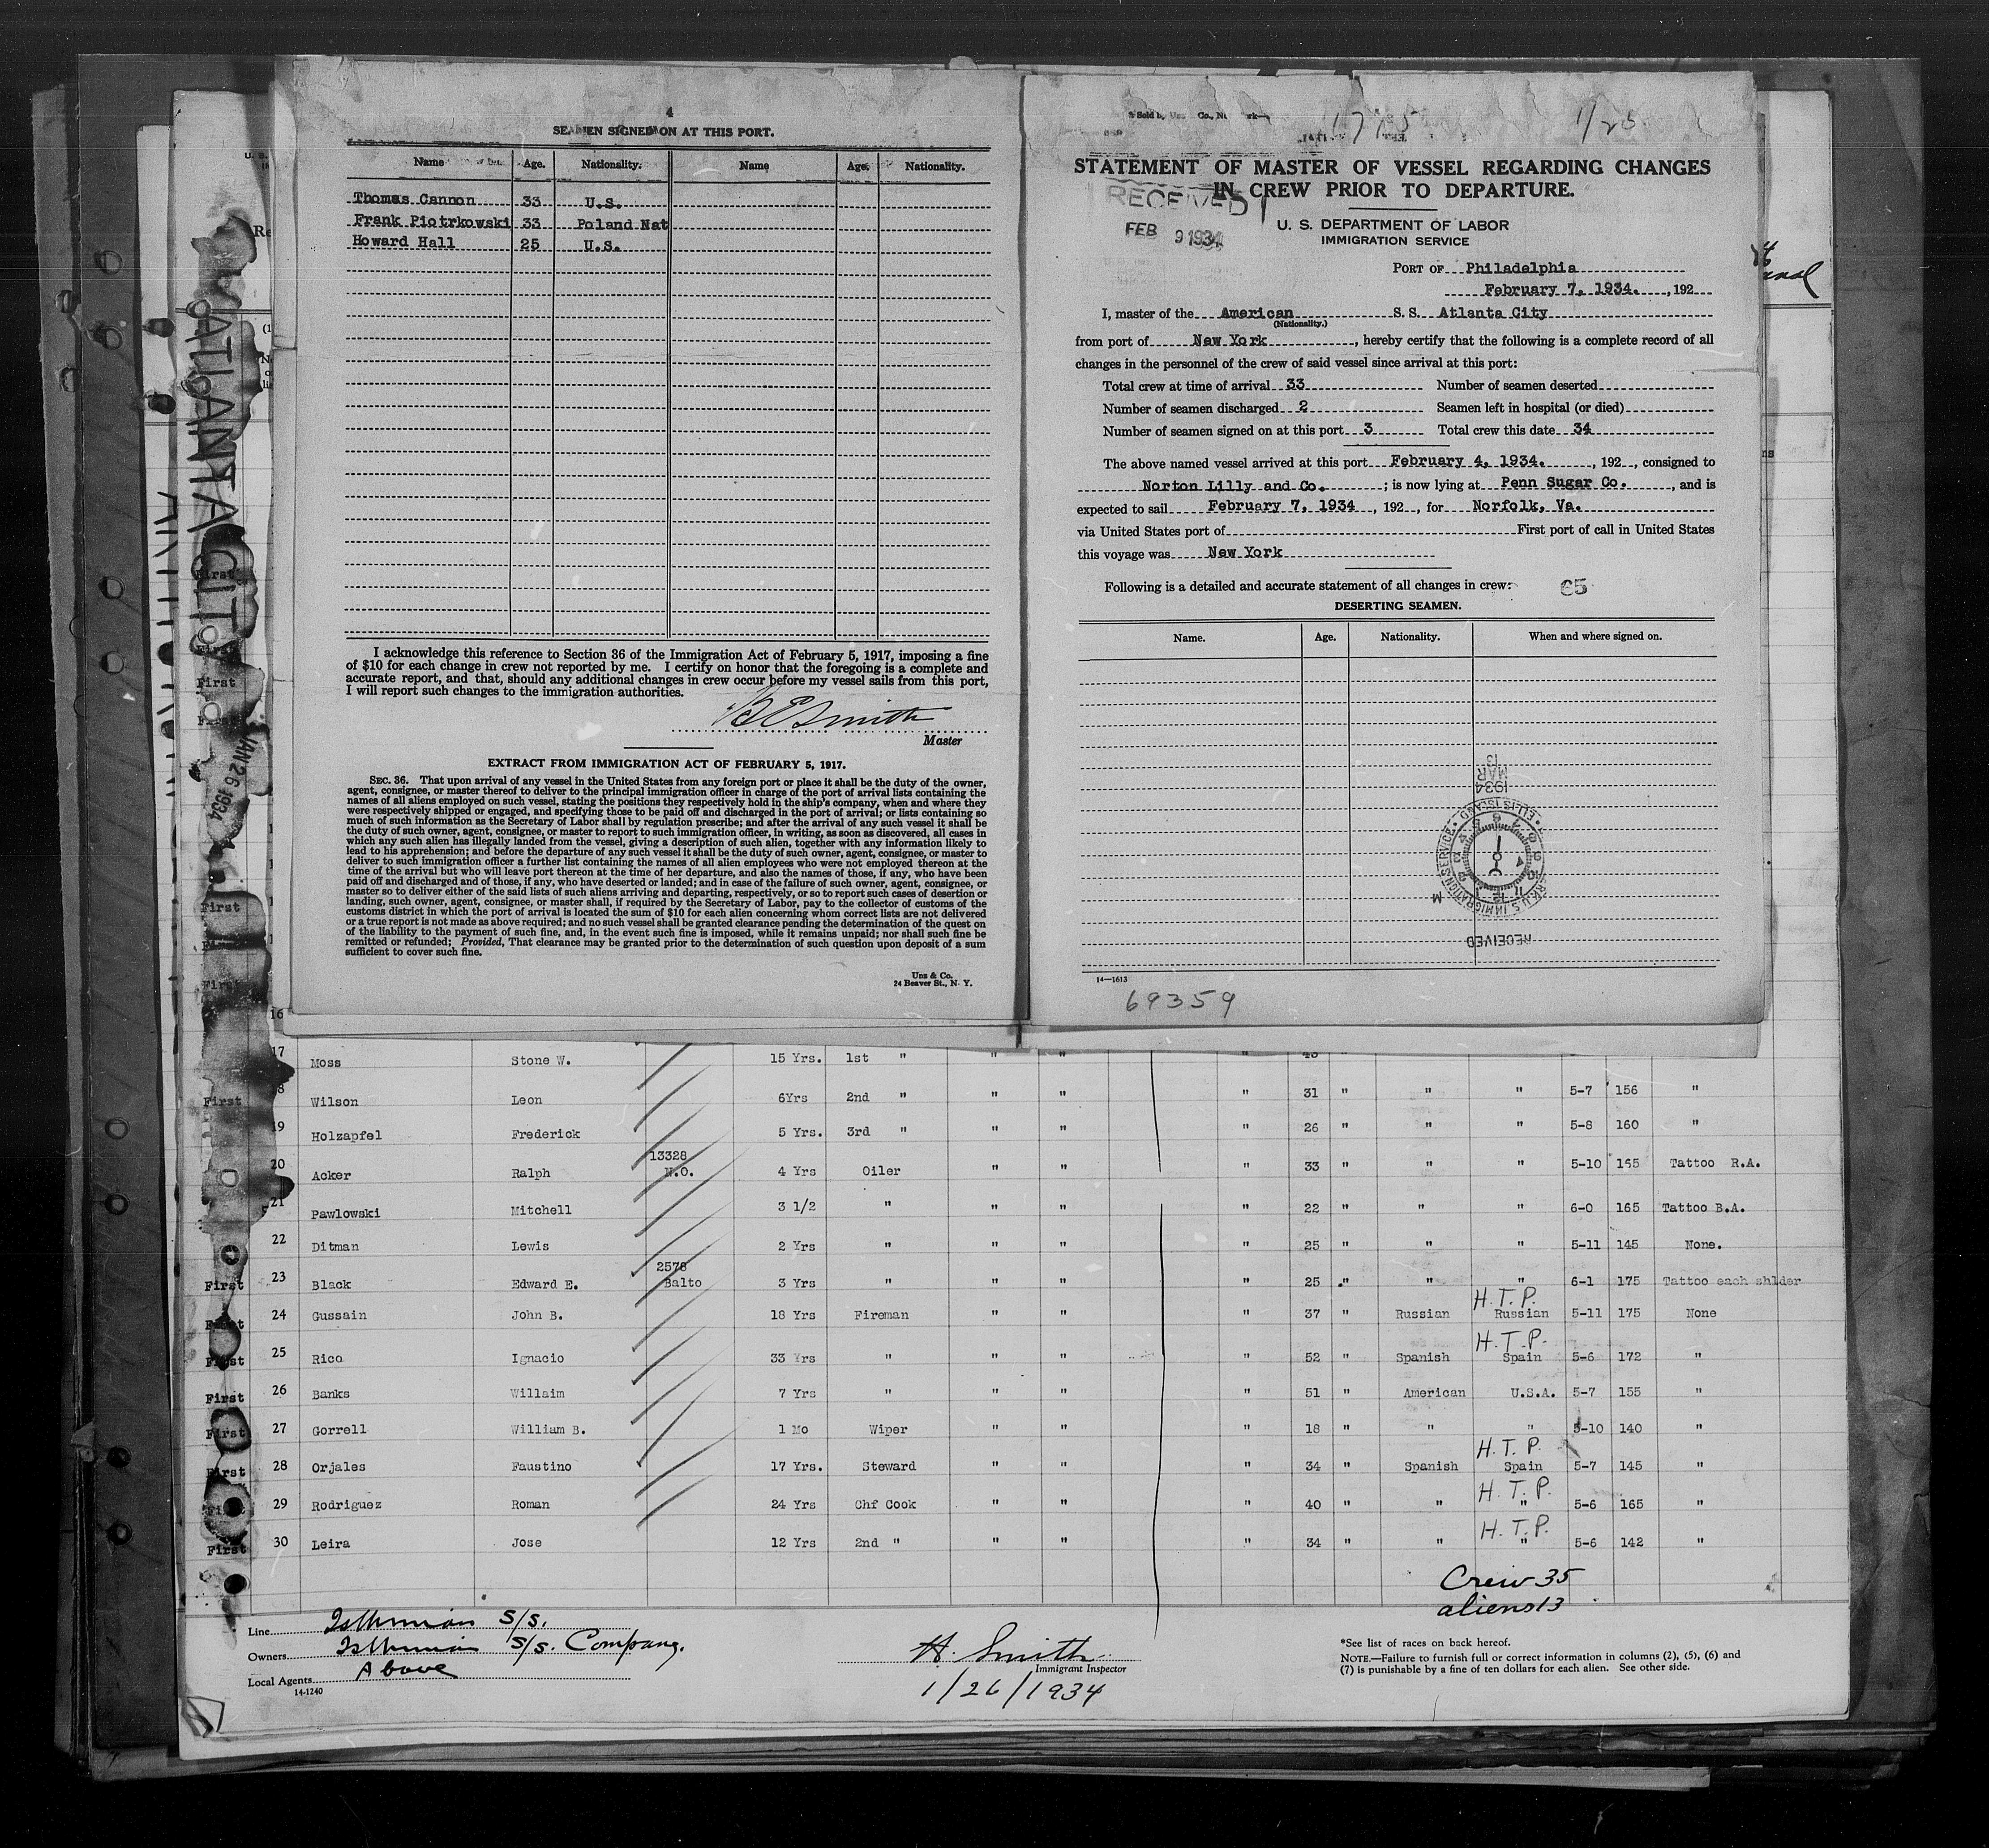 4
SEAMEN SIGNED ON AT THIS PORT.
Name Age. Nationality. Name Age. Nationality.
Thomas Cannon 33 U.S.
Frank Piotrkowski 33 Poland Nat
Howard Hall 25 U.S.
I acknowledge this reference to Section 36 of the Immigration Act of February 5, 1917, imposing a fine
of $10 for each change in crew not reported by me. I certify on honor that the foregoing is a complete and
accurate report, and that, should any additional changes in crew occur before my vessel sails from this port,
I will report such changes to the immigration authorities.
B E Smith
Master
EXTRACT FROM IMMIGRATION ACT OF FEBRUARY 5, 1917.
SEC. 36. That upon arrival of any vessel in the United States from any foreign port or place it shall be the duty of the owner,
agent, consignee, or master thereof to deliver to the principal immigration officer in charge of the port of arrival lists containing the
names of all aliens employed on such vessel, stating the positions they respectively hold in the ship's company, when and where they
were respectively shipped or engaged, and specifying those to be paid off and discharged in the port of arrival; or lists containing so
much of such information as the Secretary of Labor shall by regulation prescribe; and after the arrival of any such vessel it shall be
the duty of such owner, agent, consignee, or master to report to such immigration officer, in writing, as soon as discovered, all cases in
which any such alien has illegally landed from the vessel, giving a description of such alien, together with any information likely to
lead to his apprehension; and before the departure of any such vessel it shall be the duty of such owner, agent, consignee, or master to
deliver to such immigration officer a further list containing the names of all alien employees who were not employed thereon at the
time of the arrival but who will leave port thereon at the time of her departure, and also the names of those, if any, who have been
paid off and discharged and of those, if any, who have deserted or landed; and in case of the failure of such owner, agent, consignee, or
master so to deliver either of the said lists of such aliens arriving and departing, respectively, or so to report such cases of desertion or
landing, such owner, agent, consignee, or master shall, if required by the Secretary of Labor, pay to the collector of customs of the
customs district in which the port of arrival is located the sum of $10 for each alien concerning whom correct lists are not delivered
or a true report is not made as above required; and no such vessel shall be granted clearance pending the determination of the quest on
of the liability to the payment of such fine, and, in the event such fine is imposed, while it remains unpaid; nor shall such fine be
remitted or refunded; Provided, That clearance may be granted prior to the determination of such question upon deposit of a sum
sufficient to cover such fine.
Unz & Co.
24 Beaver St., N. Y.
1/25
STATEMENT OF MASTER OF VESSEL REGARDING CHANGES
IN CREW PRIOR TO DEPARTURE.
RECEIVED
FEB 9 1934
U. S. DEPARTMENT OF LABOR
IMMIGRATION SERVICE
PORT OF Philadelphia
February 7, 1934. , 192
I, master of the American S. S. Atlanta City
(Nationality.)
from port of New York , hereby certify that the following is a complete record of all
changes in the personnel of the crew of said vessel since arrival at this port:
Total crew at time of arrival 33 Number of seamen deserted
Number of seamen discharged 2 Seamen left in hospital (or died)
Number of seamen signed on at this port 3 Total crew this date 34
The above named vessel arrived at this port February 4, 1934. , 192 , consigned to
Norton Lilly and Co. ; is now lying at Penn Sugar Co. , and is
expected to sail February 7, 1934 , 192 , for Norfolk, Va.
via United States port of First port of call in United States
this voyage was New York
Following is a detailed and accurate statement of all changes in crew: 65
DESERTING SEAMEN.
Name. Age. Nationality. When and where signed on.
1934
MAR
13
ELLIS ISLAND
U.S. IMMIGRATION SERVICE
RECEIVED
14—1613
69359
ATLANTA CITY
JAN 26 1934
16
17 Moss Stone W. 15 Yrs. 1st " " " "
First 8 Wilson Leon 6Yrs 2nd " " " " 31 " " " 5-7 156 "
19 Holzapfel Frederick 5 Yrs. 3rd " " " " 26 " " " 5-8 160 "
13328
20 Acker Ralph N.O. 4 Yrs Oiler " " " 33 " " " 5-10 165 Tattoo R.A.
21 Pawlowski Mitchell 3 1/2 " " " " 22 " " " 6-0 165 Tattoo B.A.
22 Ditman Lewis 2 Yrs " " " " 25 " " " 5-11 145 None.
2578
First 23 Black Edward E. Balto 3 Yrs " " " " 25 " " " 6-1 175 Tattoo each shlder
H.T.P.
24 Gussain John B. 18 Yrs Fireman " " " 37 " Russian Russian 5-11 175 None
H.T.P.
First 25 Rico Ignacio 33 Yrs " " " " 52 " Spanish Spain 5-6 172 "
First 26 Banks Willaim 7 Yrs " " " " 51 " American U.S.A. 5-7 155 "
First 27 Gorrell William B. 1 Mo Wiper " " " 18 " " " 5-10 140 "
H.T.P.
First 28 Orjales Faustino 17 Yrs. Steward " " " 34 " Spanish Spain 5-7 145 "
H.T.P.
29 Rodriguez Roman 24 Yrs Chf Cook " " " 40 " " " 5-6 165 "
H.T.P.
First 30 Leira Jose 12 Yrs 2nd " " " " 34 " " " 5-6 142 "
Crew 35
aliens 13
Line Isthmian S/S.
Owners Isthmian S/S. Company.
Local Agents Above
14-1240
H. Smith
Immigrant Inspector
1/26/1934
*See list of races on back hereof.
NOTE.—Failure to furnish full or correct information in columns (2), (5), (6) and
(7) is punishable by a fine of ten dollars for each alien. See other side.